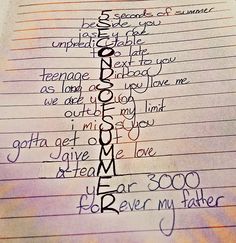 5 seconds of summer
beside you
jasey rae
unpredictable
too late
next to you
teenage dirtbag
as long as you love me
we are young
out of my limit
i miss you
gotta get out
give me love
year 3000
forever my father